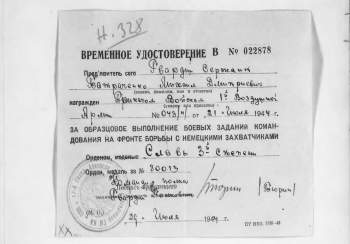 Н. 328
ВРЕМЕННОЕ УДОСТОВЕРЕНИЕ В № 022878
Пред'явитель сего Гвардии Сержант
Михаил Дмитриевич
награжден Приказом Войскам 1й Воздушной
Армии № 043/н от 21 Июля 1944 г.
ЗА ОБРАЗЦОВОЕ ВЫПОЛНЕНИЕ БОЕВЫХ ЗАДАНИЙ КОМАН-
ДОВАНИЯ НА ФРОНТЕ БОРЬБЫ С НЕМЕЦКИМИ ЗАХВАТЧИКАМИ
Орденом, медалью Славы 3й Степени
Орден, медаль за № 80013
Командир полка
Гвардии
29 Июля 1944 г.
XX